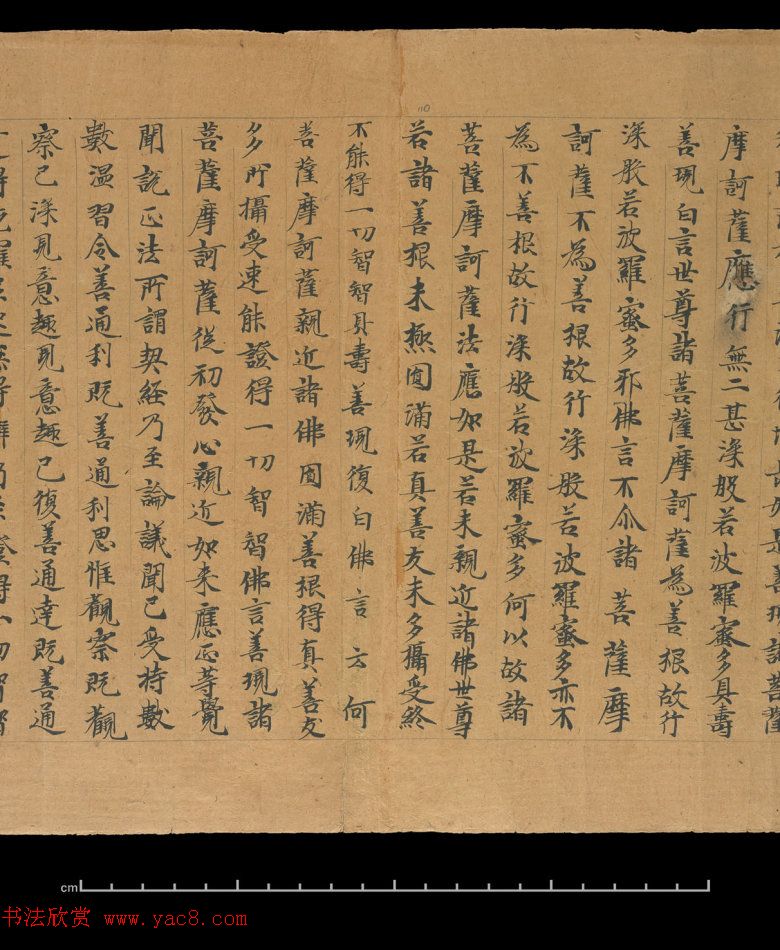 如是善現諸菩薩
摩訶薩應行無二甚深般若波羅蜜多具壽
善現白言世尊諸菩薩摩訶薩為善根故行
深般若波羅蜜多耶佛言不尒諸菩薩摩
訶薩不為善根故行深般若波羅蜜多亦不
為不善根故行深般若波羅蜜多何以故諸
菩薩摩訶薩法應如是若未親近諸佛世尊
若諸善根未極圓滿若真善友未多攝受終
不能得一切智智具壽善現復白佛言云何
菩薩摩訶薩親近諸佛圓滿善根得真善友
多所攝受速能證得一切智智佛言善現諸
菩薩摩訶薩從初發心親近如来應正等覺
聞說正法所謂契經乃至論議聞已受持數
數温習令善通利既善通利思惟觀察既觀
察已深見意趣見意趣已復善通達既善通
110
cm
书法欣赏 www.yac8.com